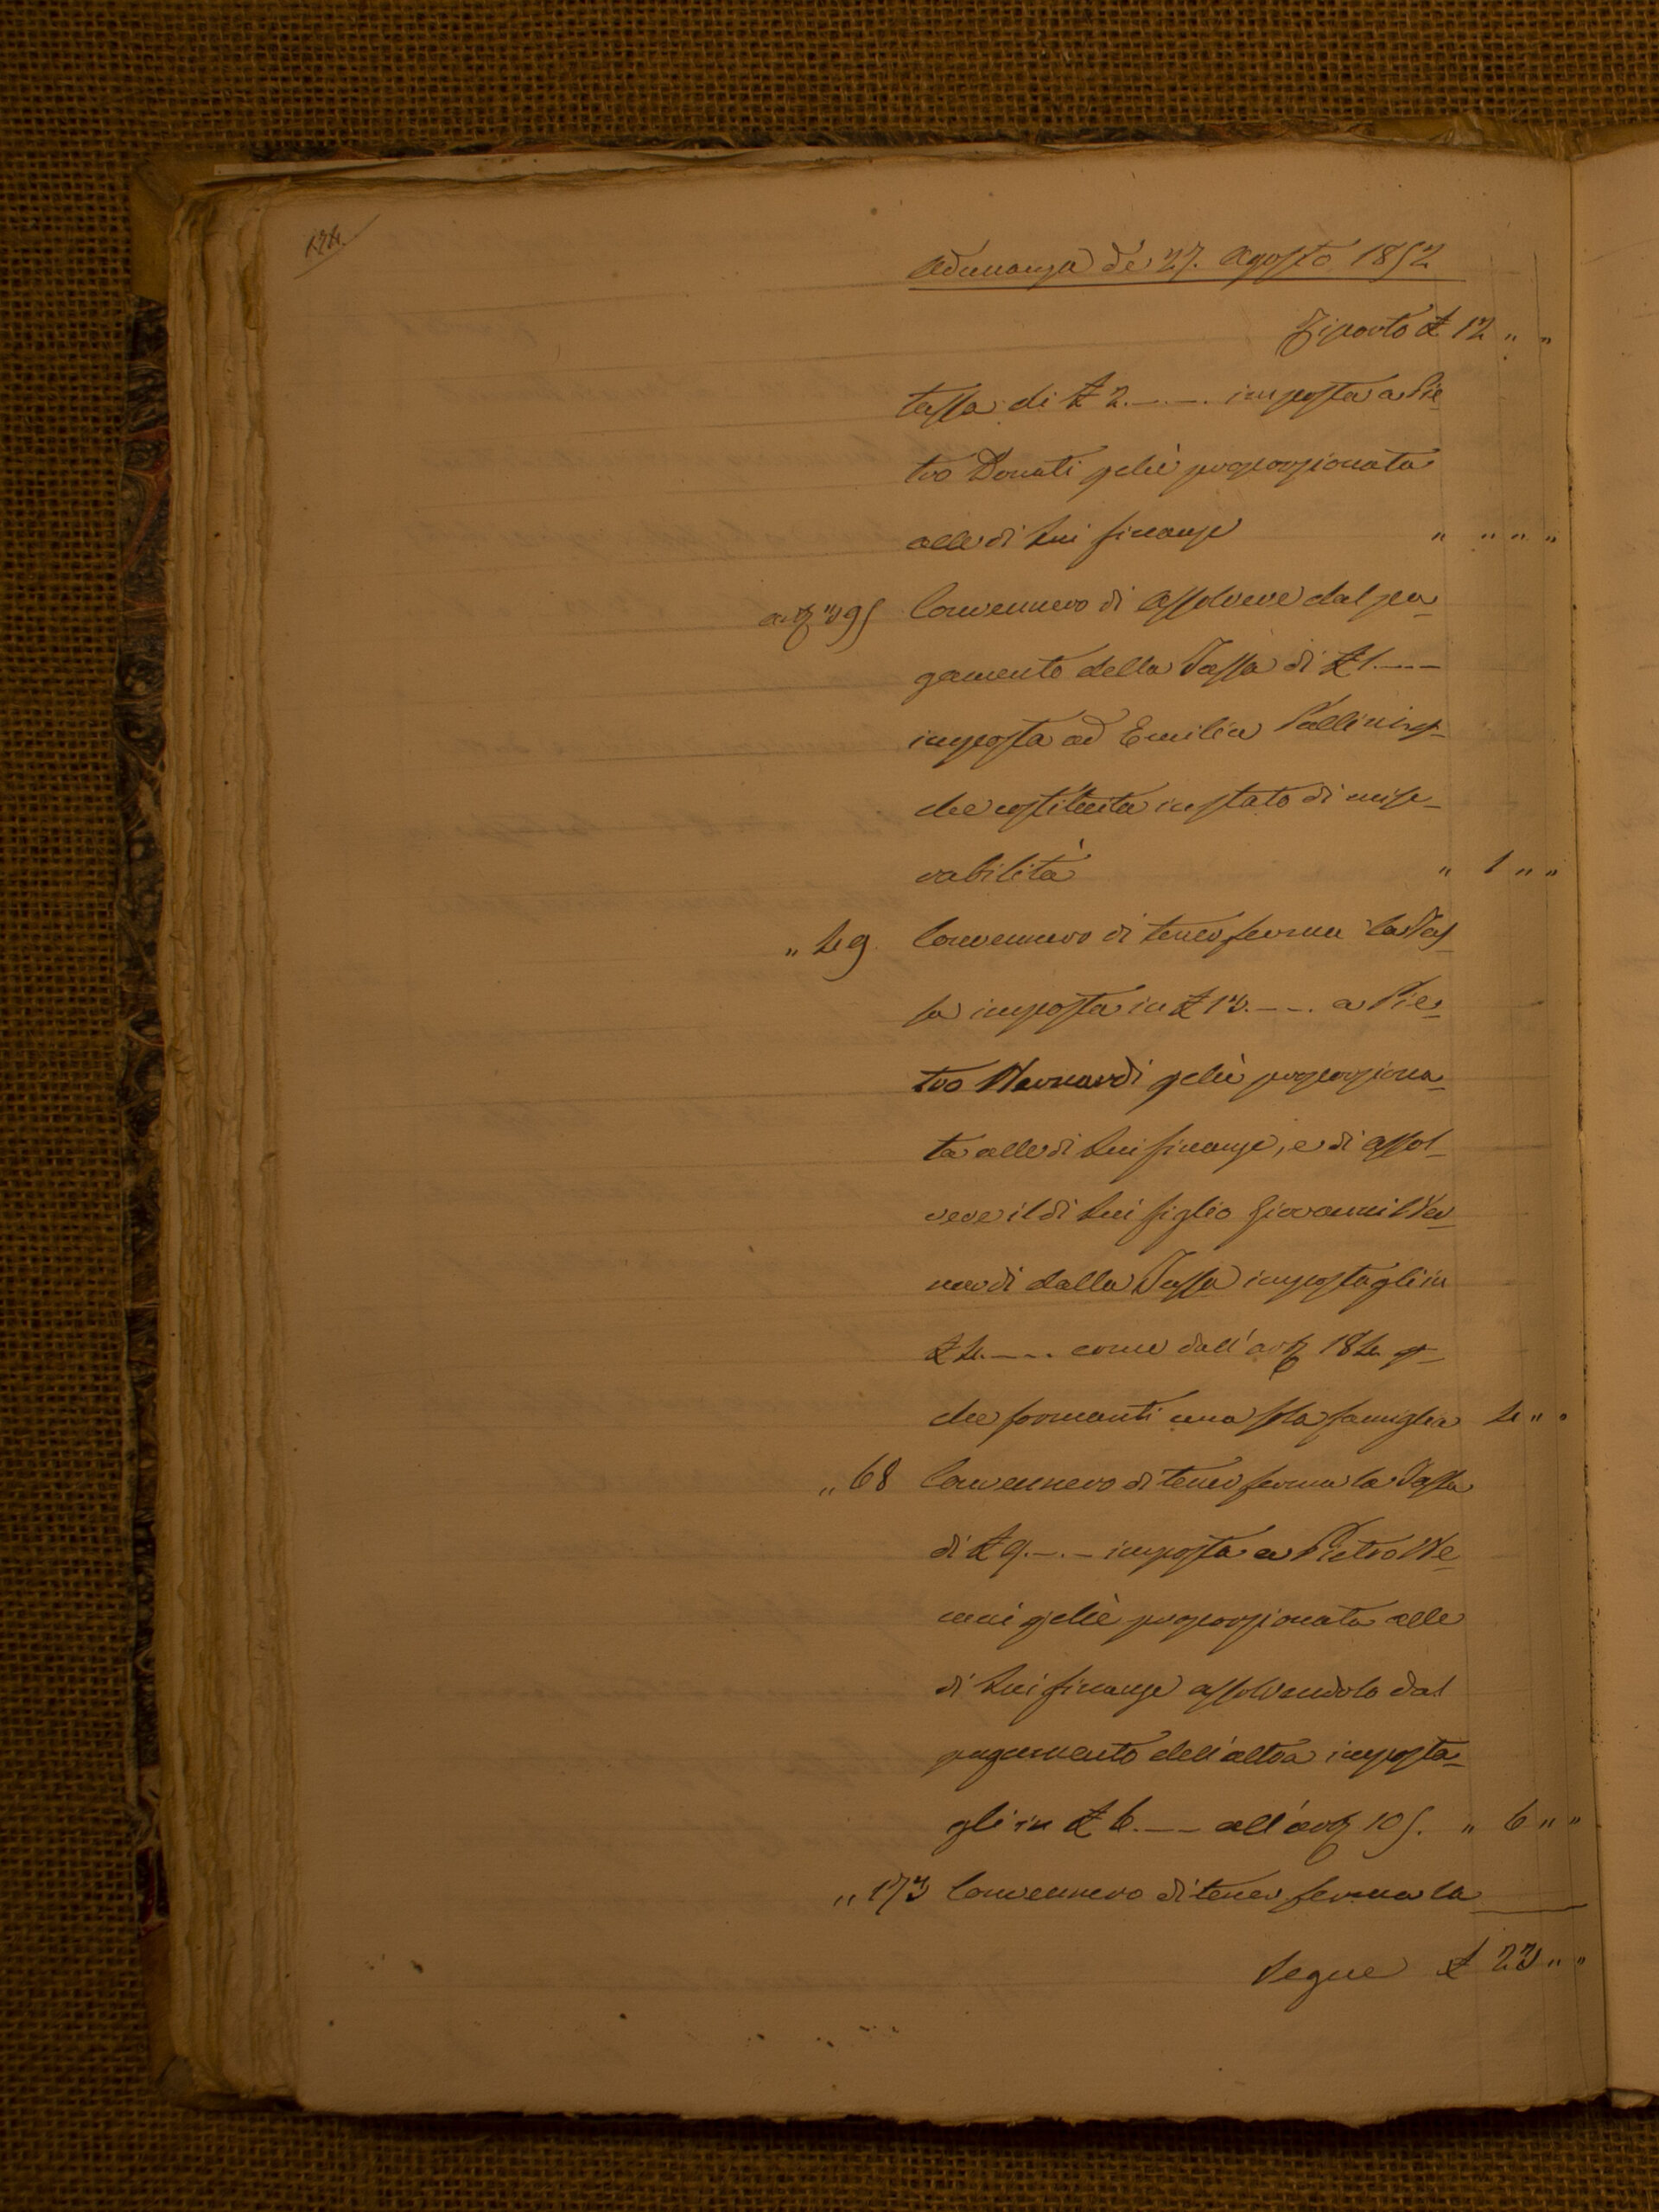 124.
Adunanza de' 27. Agosto 1852
Riporto £ 12 " "
tassa di £ 2.-.-. imposta a Pie_
tro Donati p chè proporzionata
alle di Lui finanze " " " "
art 395 Convennero di assolvere dal pa_
gamento della Tassa di £ 1.-.-
imposta ad Emilia Pallini p_
che costituita in stato di mise_
rabilità " 1 " "
" 49. Convennero di tener ferma la Tas_
sa imposta in £ 13.-.-. a Pie_
tro Nannardi p chè proporziona_
ta alle di Lui finanze, e di assol_
vere il di Lui figlio Giovanni
dalla Tassa impostagli in
£ 4.-.-. come dall' art 184 p_
che formanti una sola famiglia 4 " "
" 68 Convennero di tener ferma la Tassa
di £ 9.-.- imposta a Pietro Ne_
nni p chè proporzionata alle
di Lui finanze assolvendolo dal
pagamento dell'altra imposta_
gli in £ 6.-.- all'art 105. " 6 " "
" 173 Convennero di tener ferma la
Segue £ 23 " "